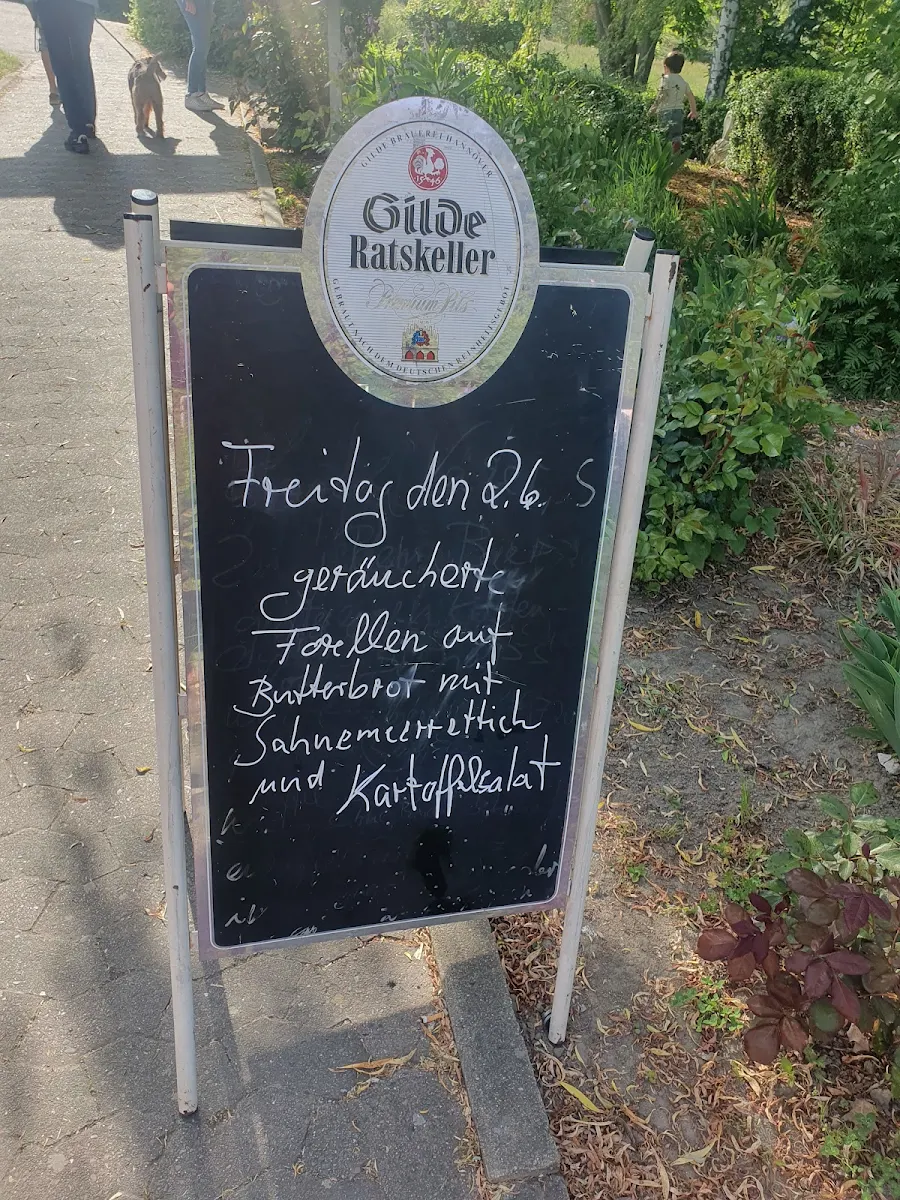 GILDE BRAUEREI HANNOVER
1546
Gilde
Ratskeller
Premium Pils
GEBRAUT NACH DEM DEUTSCHEN REINHEITSGEBOT
Freitag den 2.6. S
geräucherte
Forellen auf
Butterbrot mit
Sahnemeerrettich
und Kartoffelsalat